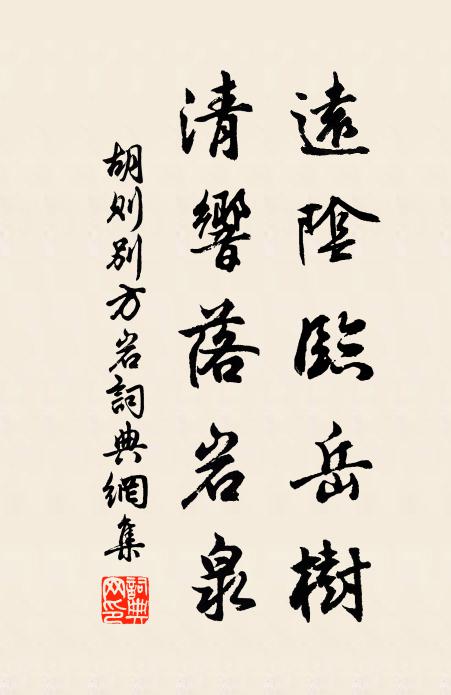 遠陰臨岳樹
清響落岩泉
胡则别方岩詞典網集
詞典
网印